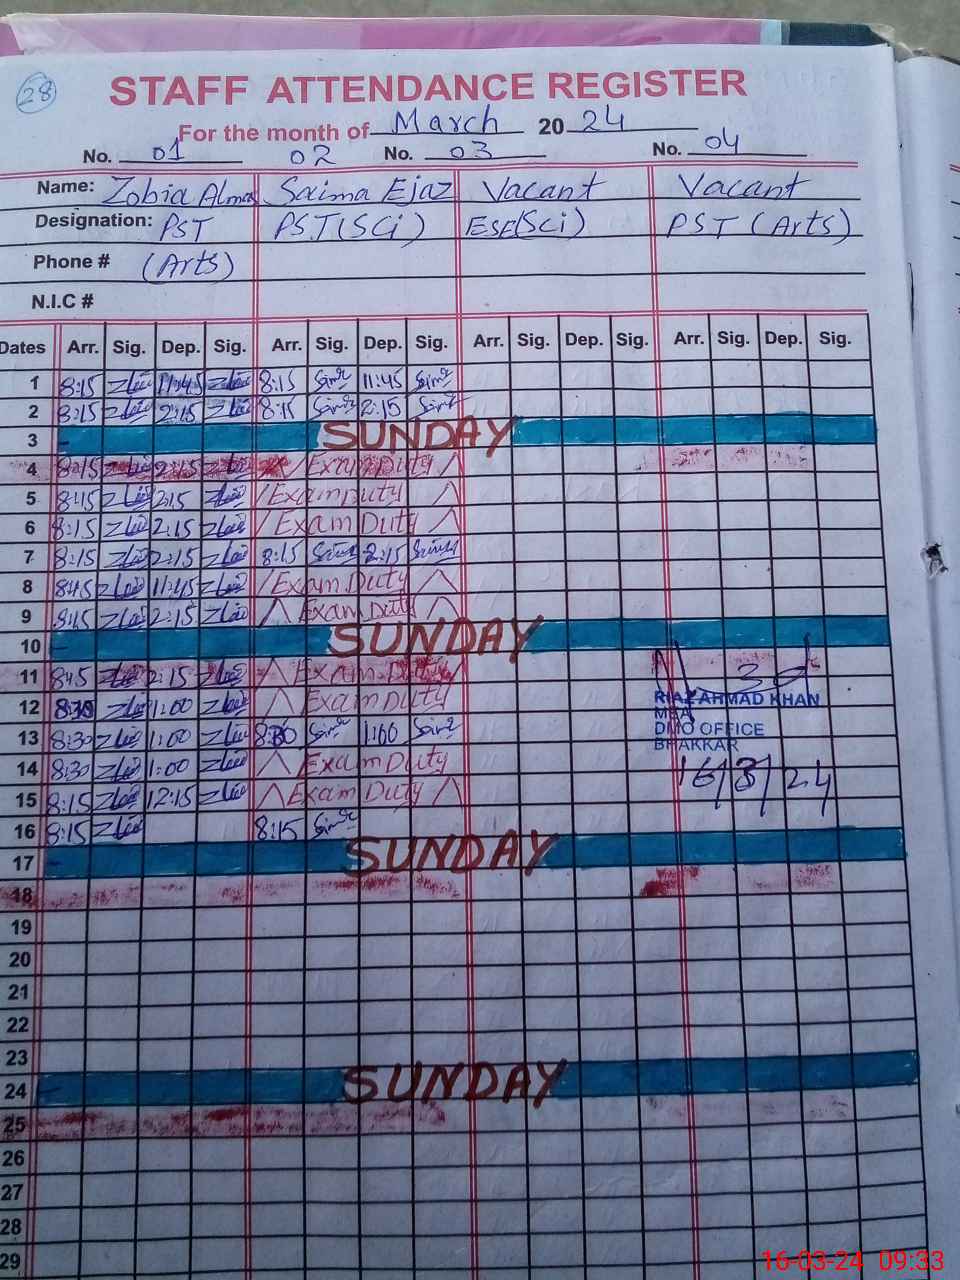 28
STAFF ATTENDANCE REGISTER
For the month of March 20 24
No. 01 02 No. 03 No. 04
Name: Zobia Saima Ejaz Vacant Vacant
Designation: PST PST(SCi) ESE(SCi) PST (Arts)
Phone # (Arts)
N.I.C #
Dates Arr. Sig. Dep. Sig. Arr. Sig. Dep. Sig. Arr. Sig. Dep. Sig. Arr. Sig. Dep. Sig.
1 8:15 11:45 8:15 11:45
2 8:15 2:15 8:15 2:15
3 SUNDAY
4 8:15 2:15 Exam Duty
5 8:15 2:15 Exam Duty
6 8:15 2:15 Exam Duty
7 8:15 2:15 8:15 2:15
8 11:45 Exam Duty
9 8:15 2:15 Exam Duty
10 SUNDAY
11 2:15 Exam Duty
12 8:30 1:00 Exam Duty
RIAZ AHMAD KHAN
MEA
DMO OFFICE
BHAKKAR
13 8:30 1:00 8:30 1:00
14 8:30 1:00 Exam Duty
16/3/24
15 8:15 12:15 Exam Duty
16 8:15 8:15
17 SUNDAY
18
19
20
21
22
23
24 SUNDAY
25
26
27
28
29
16-03-24 09:33